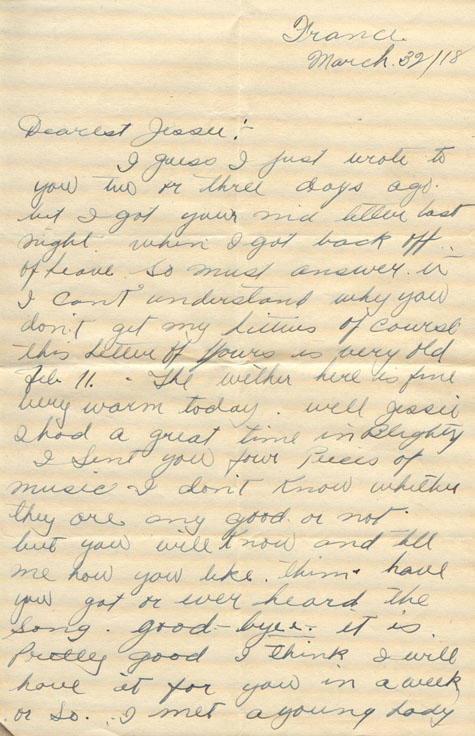 France
March. 32/18
Dearest Jessie:-
I guess I just wrote to
you two or three days ago.
but I got your letter last
night. when I got back off.
of leave. So must answer. it
I can't understand why you
don't get my letters of course
this letter of yours is very old
Feb 11. - The wether here is fine
very warm today. well Jessie
I had a great time in Blighty
I Sent you four Pieces of
music I don't Know whether
they are any good or not.
but you will know and tell
me how you like. them. have
you got or ever heard the
song. good-byee. it is
Pretty good I think I will
have it for you in a week
or So. I met a young Lady